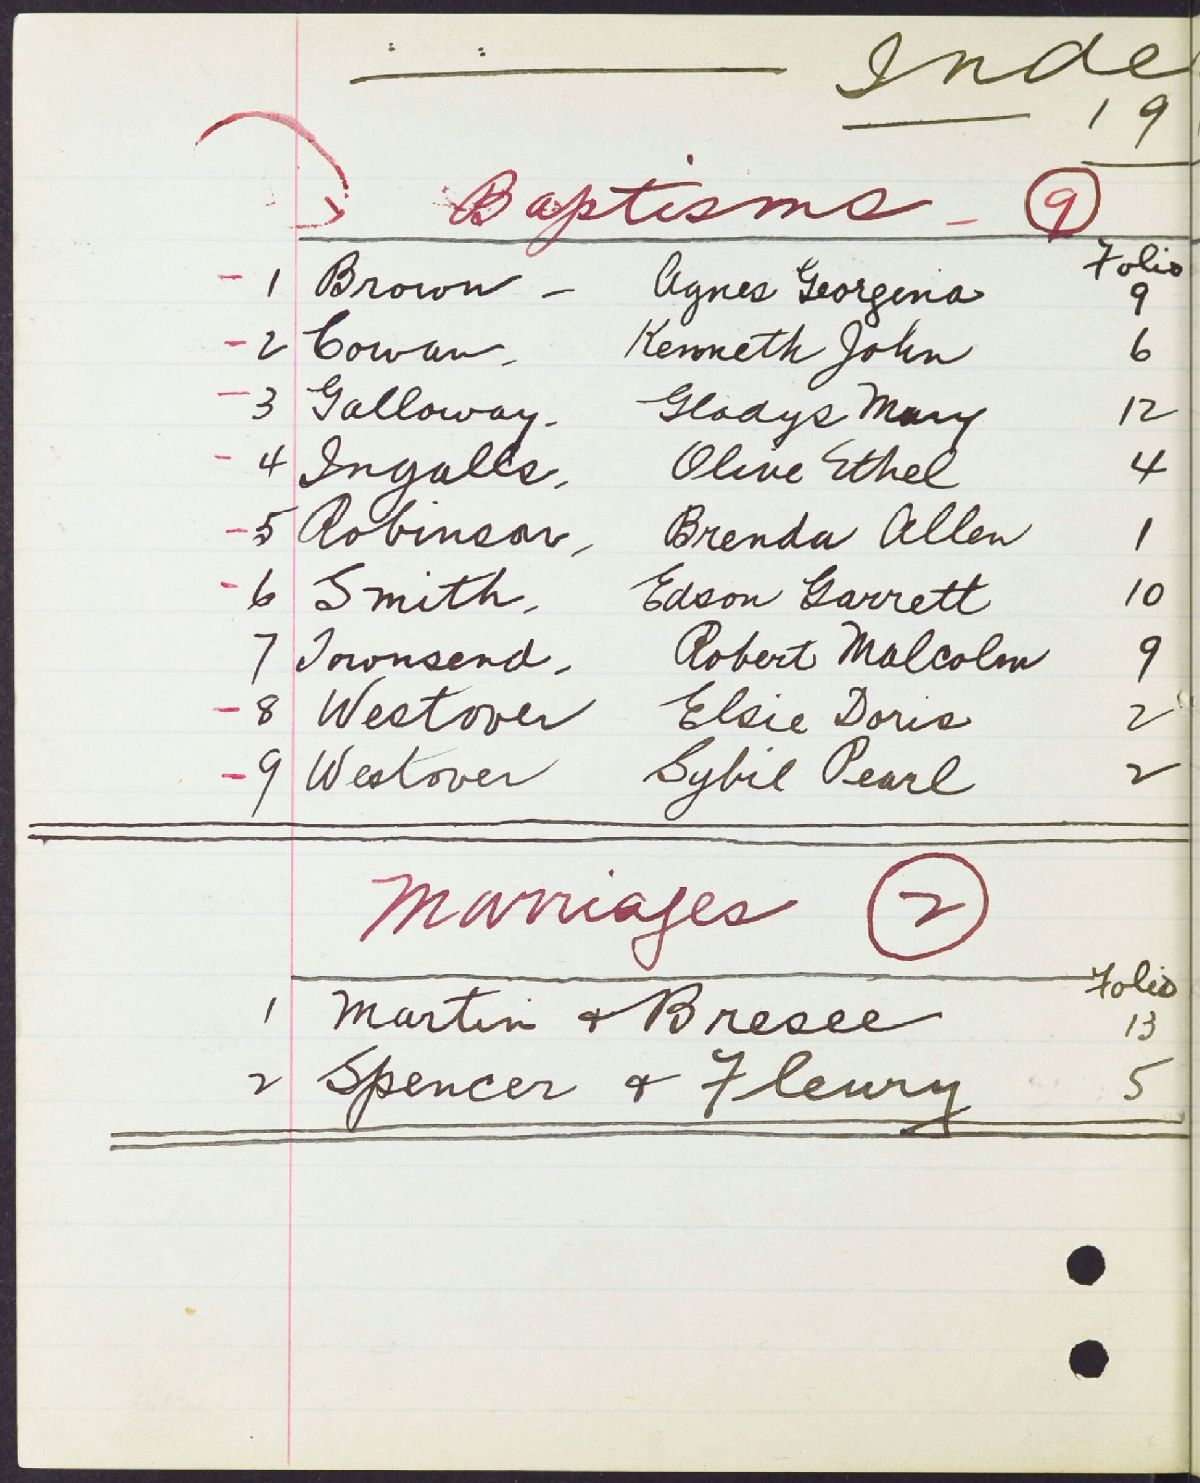 Inde
19
Baptisms - 9
Folio
- 1 Brown - Agnes Georgena 9
- 2 Cowan, Kenneth John 6
- 3 Galloway. Gladys Mary 12
- 4 Ingalls, Olive Ethel 4
- 5 Robinson, Brenda Allen 1
- 6 Smith, Edson Garrett 10
7 Townsend, Robert Malcolm 9
- 8 Westover Elsie Doris 2
- 9 Westover Sybil Pearl 2
Marriages 2
Folio
1 Martin & Bresee 13
2 Spencer & Fleury 5